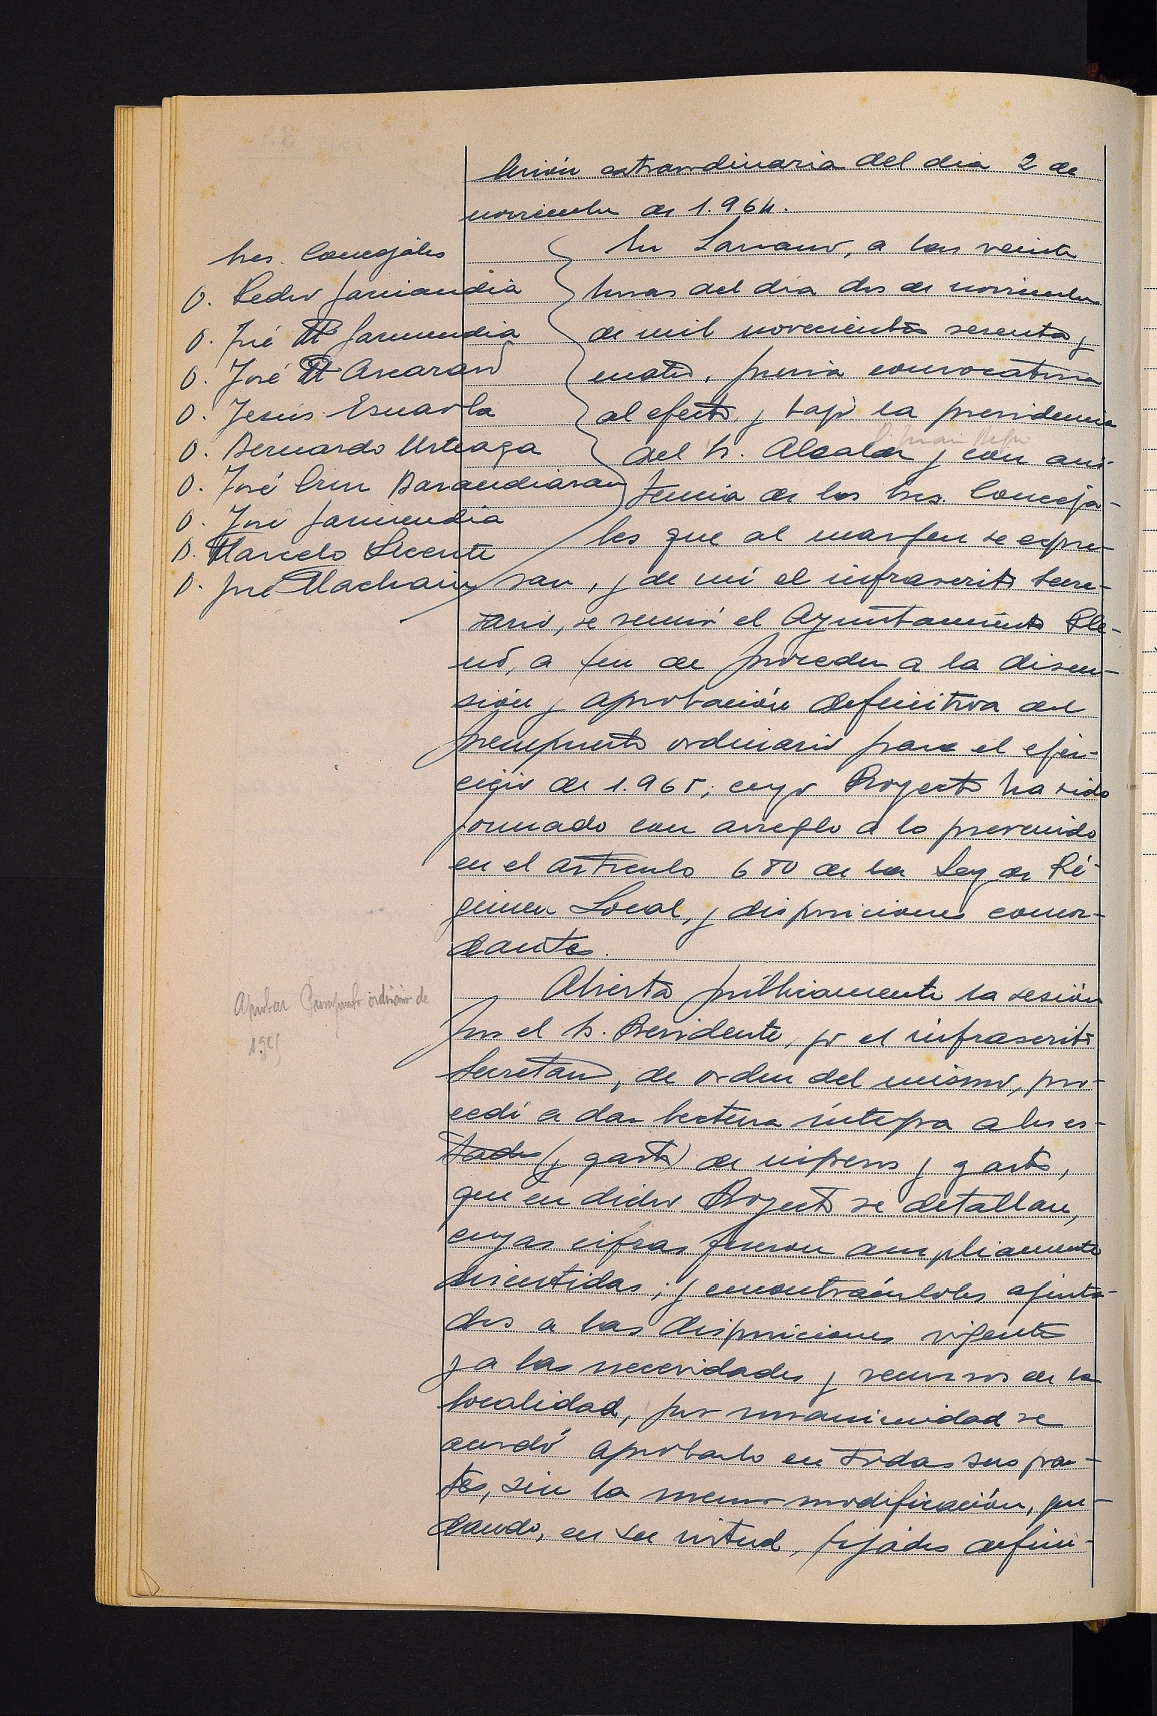 Sesión extraordinaria del dia 2 de
noviembre de 1.964.
Sres. Concejales
D. Pedro Jauniandia
D. José Mª Jaimendia
D. José Mª Ascarard
D. Jesús Esnaola
D. Bernardo Urteaga
D. José Cruz Barandiaran
D. José Jaimendia
D. Marcelo Lecente
D. José Machain
En Lazcano, a las veinte
horas del dia dos de noviembre
de mil novecientos sesenta y
cuatro, previa convocatoria
al efecto, y bajo la presidencia
del Sr. Alcalde y con asis-
tencia de los Sres. Conceja-
les que al margen se expre-
san, y de mí el infrascrito Secre-
tario, se reunió el Ayuntamiento Ple-
no, a fin de proceder a la discu-
sión y aprobación definitiva del
presupuesto ordinario para el ejer-
cicio de 1.965; cuyo Proyecto ha sido
formado con arreglo a lo prevenido
en el artículo 680 de la Ley de Ré-
gimen Local, y disposiciones concor-
dantes.
Aprobar Presupuesto ordinario de
1965
Abierta públicamente la sesión
por el Sr. Presidente, yo el infrascrito
Secretario, de orden del mismo, pro-
cedí a dar lectura íntegra a los es-
tados (y gasto) de ingresos y gastos,
que en dicho Proyecto se detallan,
cuyas cifras fueron ampliamente
discutidas; y encontrándolos ajusta-
dos a las disposiciones vigentes
y a las necesidades y recursos de la
localidad, por unanimidad se
acordó aprobarlo en todas sus par-
tes, sin la menor modificación, que-
dando, en su virtud, fijados defini-